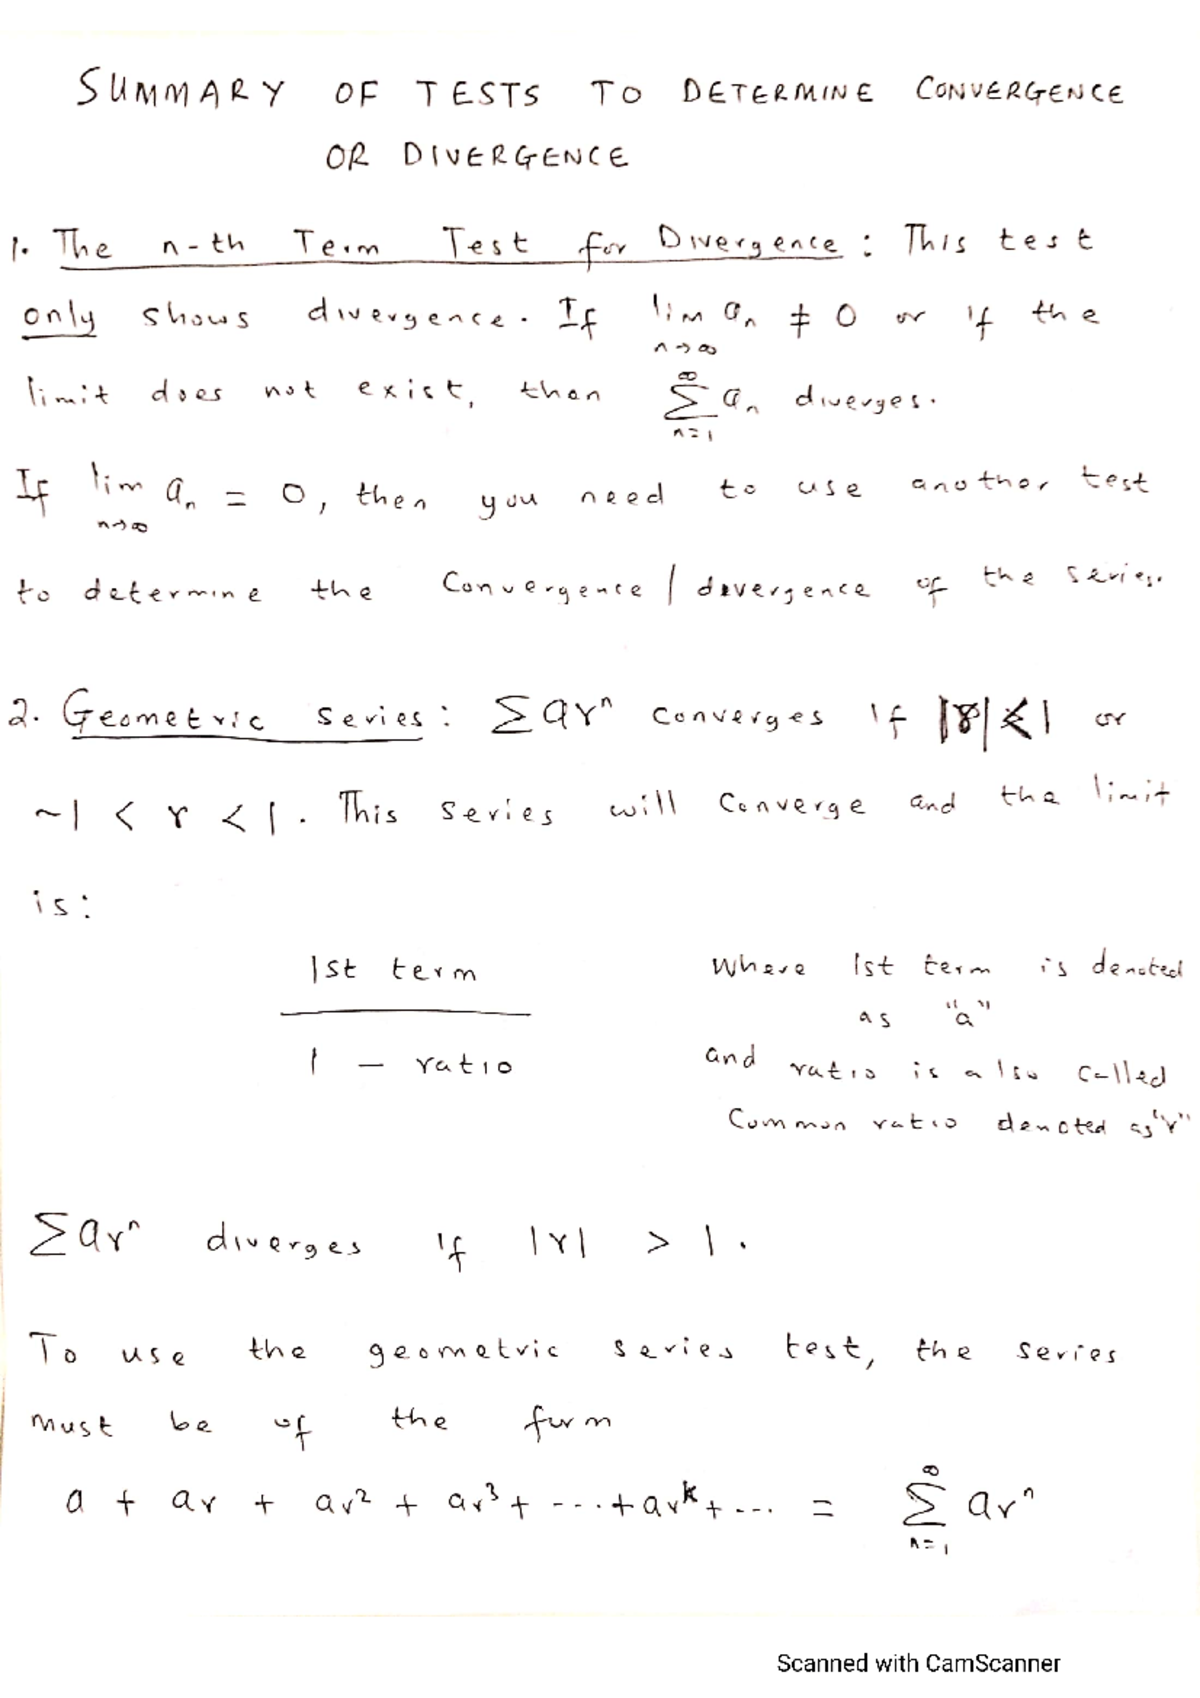 SUMMARY OF TESTS TO DETERMINE CONVERGENCE
OR DIVERGENCE
1. The n-th Term Test for Divergence : This test
only shows divergence. If lim n→∞ aₙ ≠ 0 or if the
limit does not exist, then ∞ Σ n=1 aₙ diverges.
If lim n→∞ aₙ = 0, then you need to use another test
to determine the Convergence / divergence of the series.
2. Geometric Series : Σarⁿ converges if |r| < 1 or
~1 < r < 1. This series will Converge and the limit
is:
1st term
1 - ratio
Where 1st term is denoted
as "a"
and ratio is also called
Common ratio denoted as "r"
Σarⁿ diverges if |r| > 1.
To use the geometric series test, the series
must be of the form
a + ar + ar² + ar³ + ---.+ arᵏ + --.. = ∞ Σ n=1 arⁿ
Scanned with CamScanner